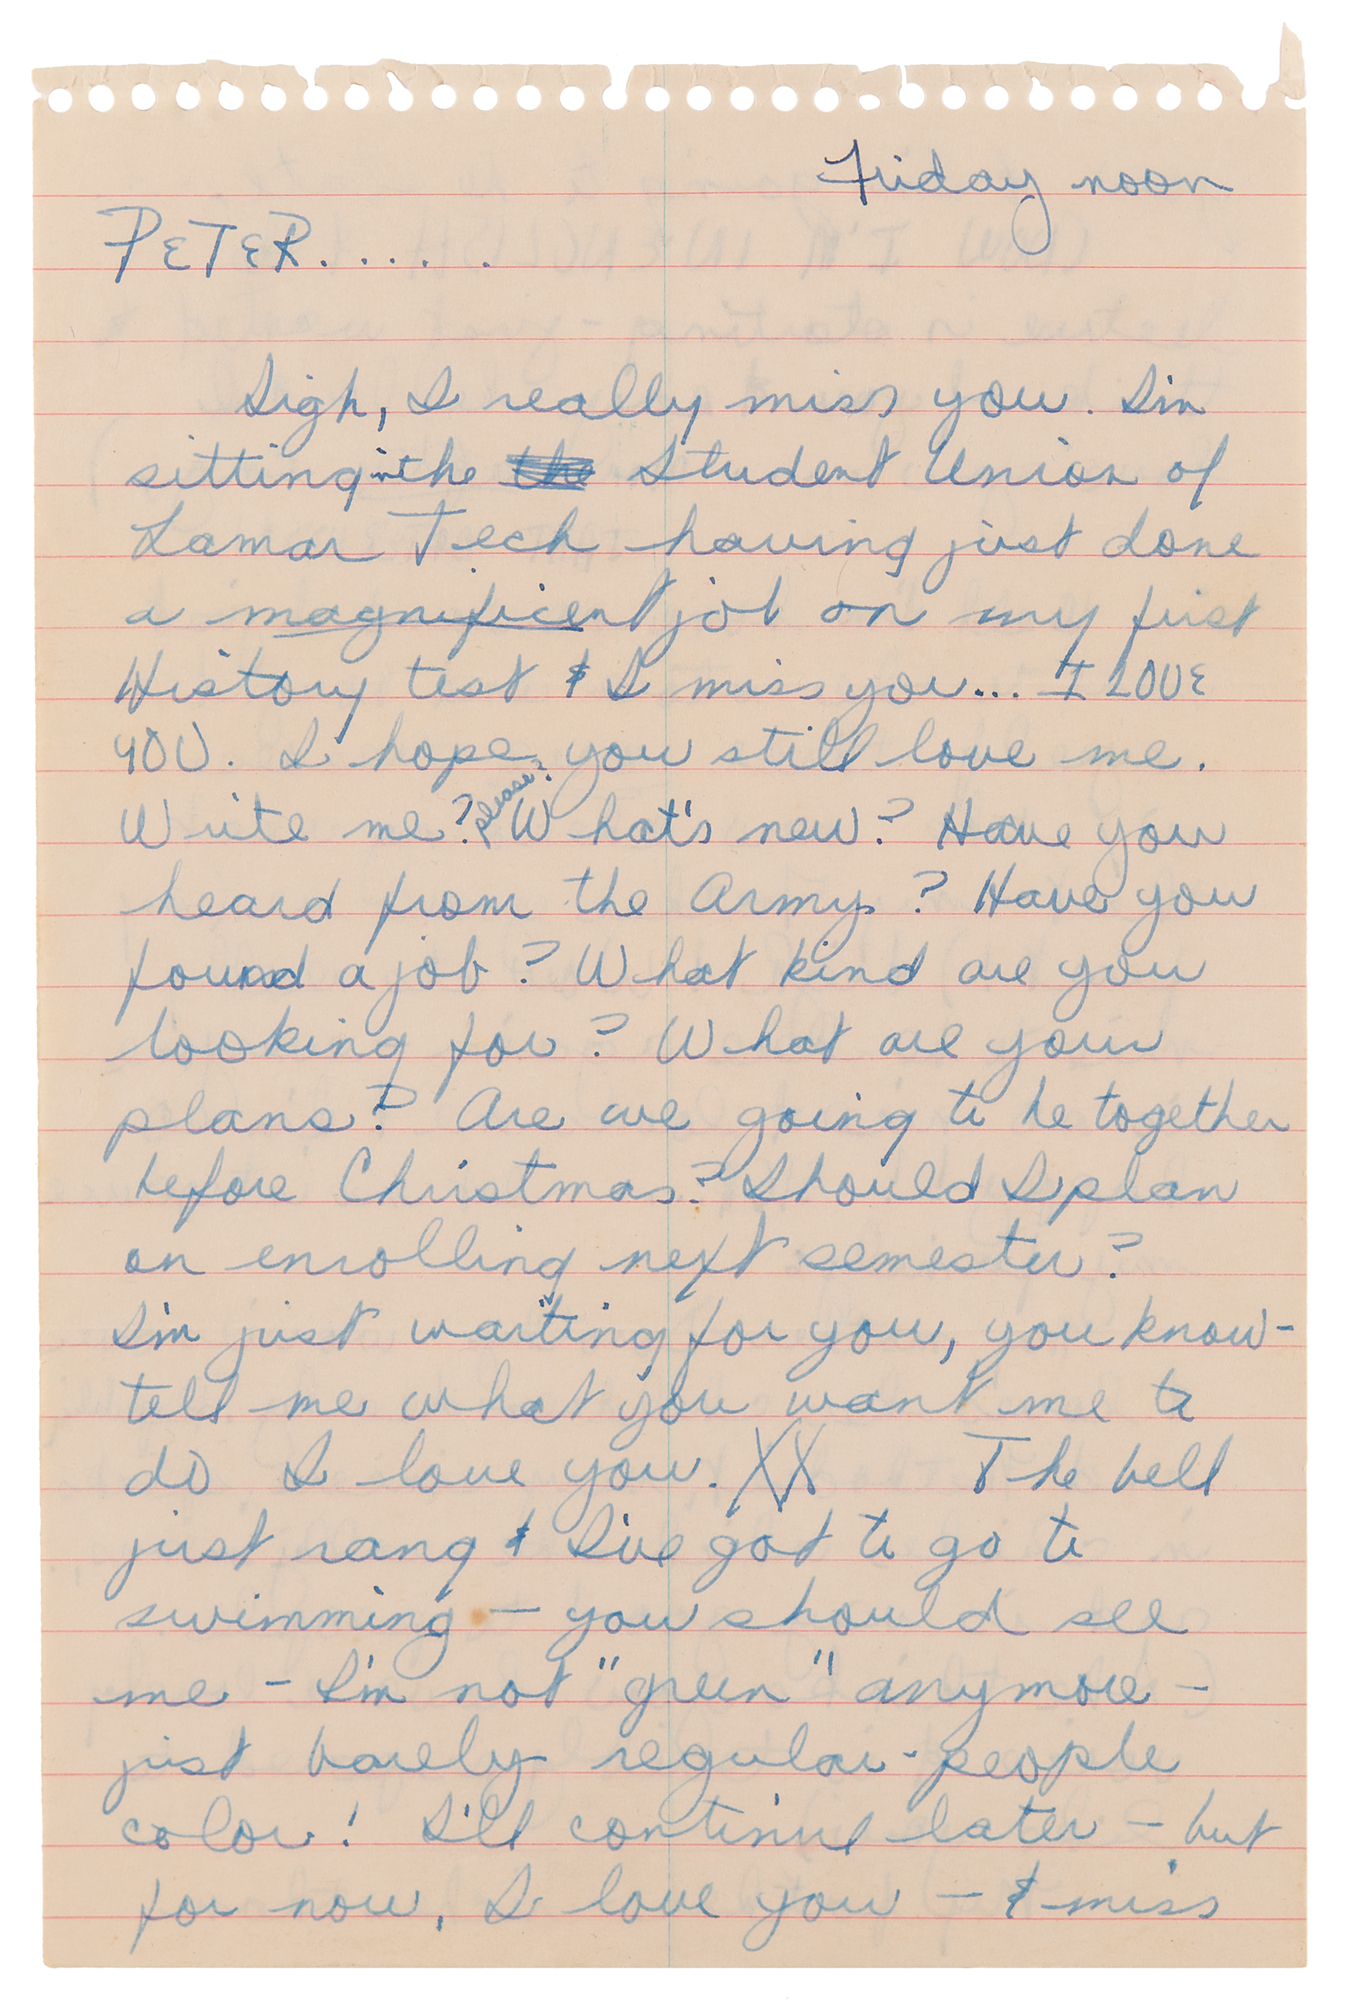 Friday noon
PETER......
Sigh, I really miss you. I'm
sitting in the the Student Union of
Lamar Tech having just done
a magnificent job on my first
History test & I miss you... I LOVE
YOU. I hope you still love me.
Write me? please? What's new? Have you
heard from the Army? Have you
found a job? What kind are you
looking for? What are your
plans? Are we going to be together
before Christmas? Should I plan
on enrolling next semester?
I'm just waiting for you, you know-
tell me what you want me to
do I love you. XX The bell
just rang & I've got to go to
swimming — you should see
me - I'm not "green" anymore -
just barely regular-people
color! I'll continue later — but
for now, I love you — & miss